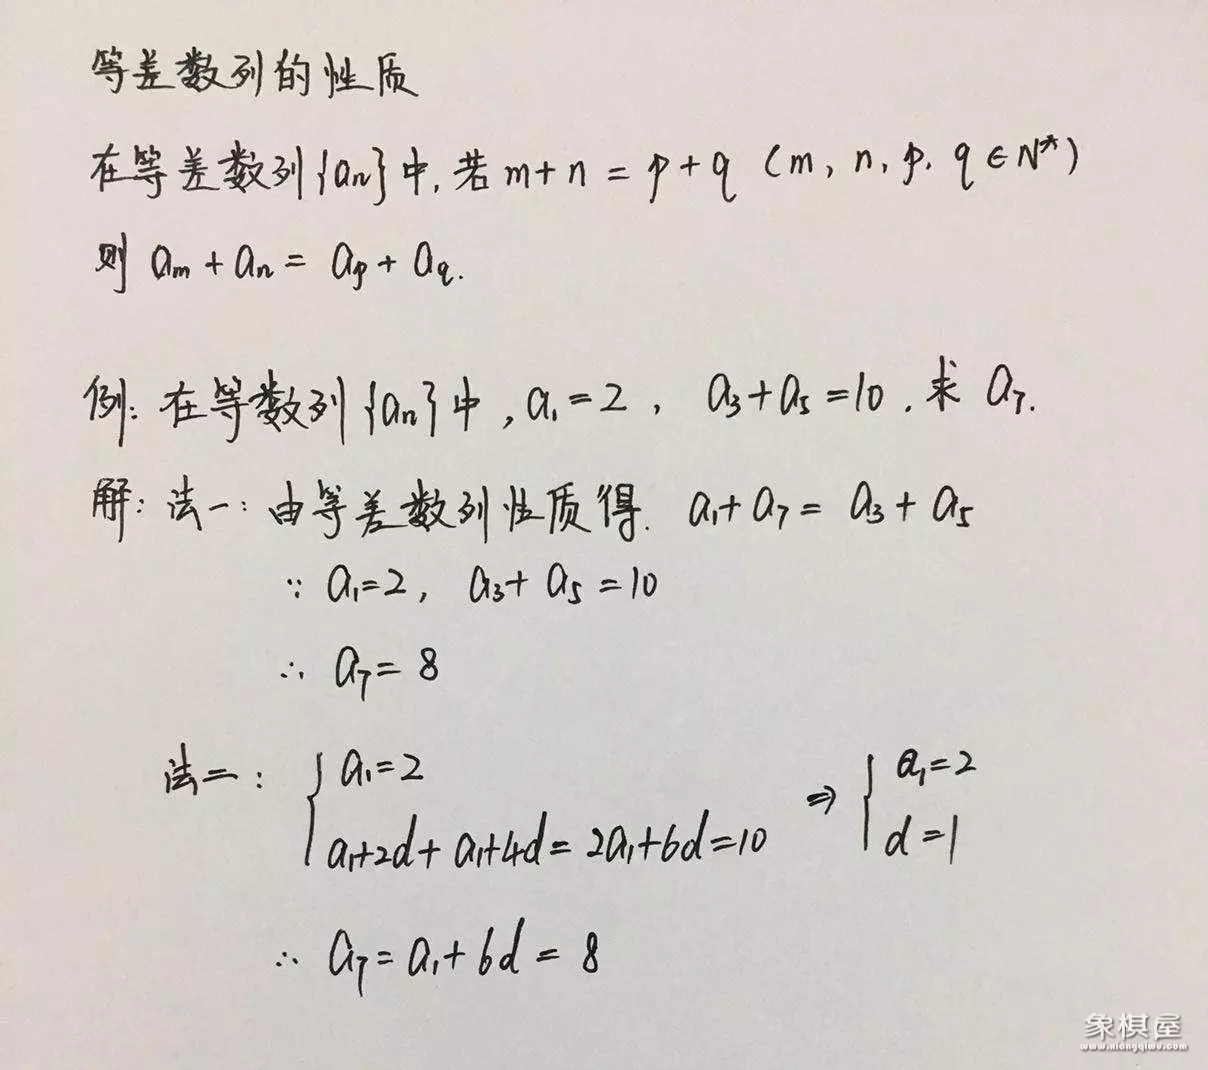 等差数列的性质
在等差数列{aₙ}中,若m+n=p+q (m,n,p,q∈N*)
则 aₘ+aₙ=aₚ+a_q.
例:在等数列{aₙ}中,a₁=2, a₃+a₅=10.求a₇.
解:法一:由等差数列性质得. a₁+a₇=a₃+a₅
∵ a₁=2, a₃+a₅=10
∴ a₇=8
法二: { a₁=2 ⇒ { a₁=2
a₁+2d+a₁+4d=2a₁+6d=10 d=1
∴ a₇=a₁+6d=8
象棋屋
www.xiangqiwu.com